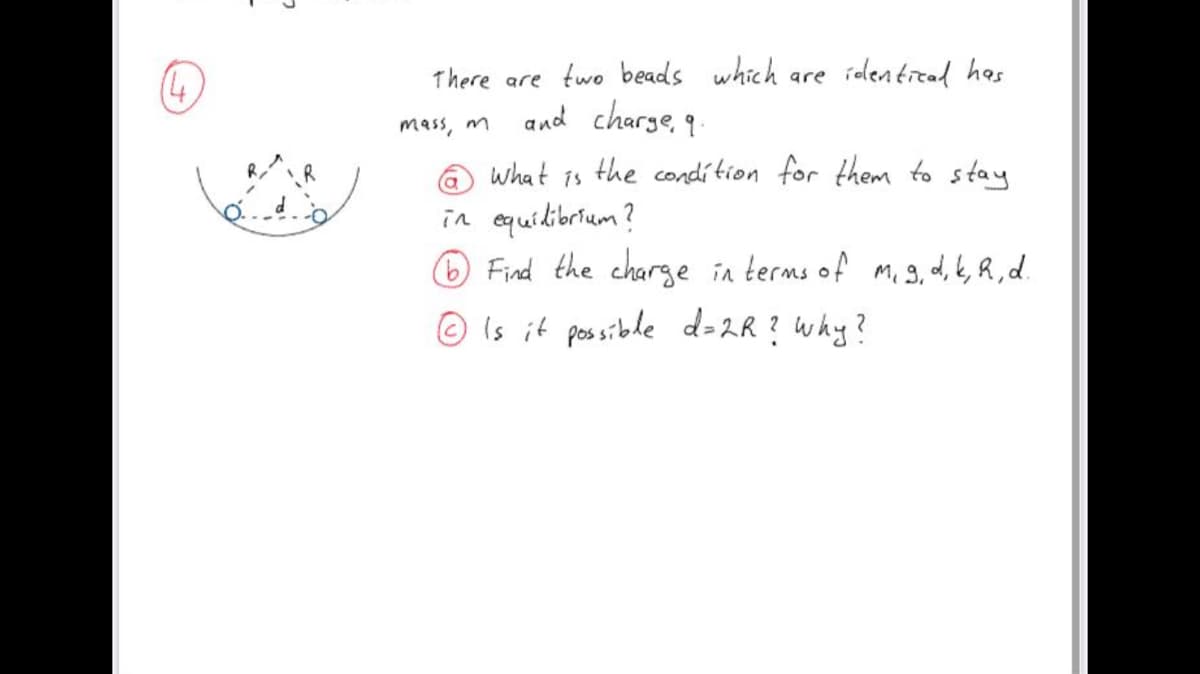 4
There are two beads which are identical has
mass, m and charge, q.
R R
d
a What is the condition for them to stay
in equilibrium?
b Find the charge in terms of m, g, d, k, R, d.
c Is it possible d=2R? Why?